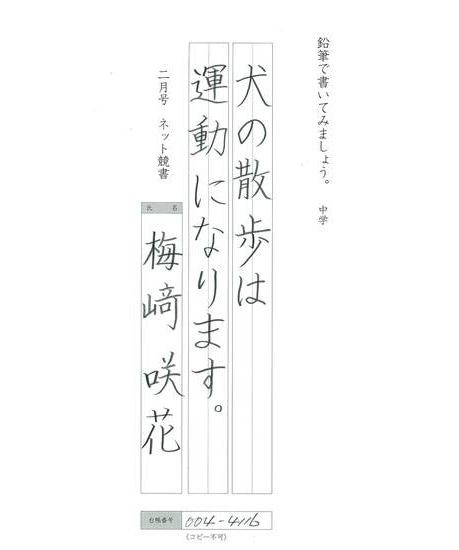 鉛筆で書いてみましょう。 中学
犬の散歩は
運動になります。
二月号 ネット競書
氏 名
梅﨑 咲花
台帳番号 004-4116
(コピー不可)